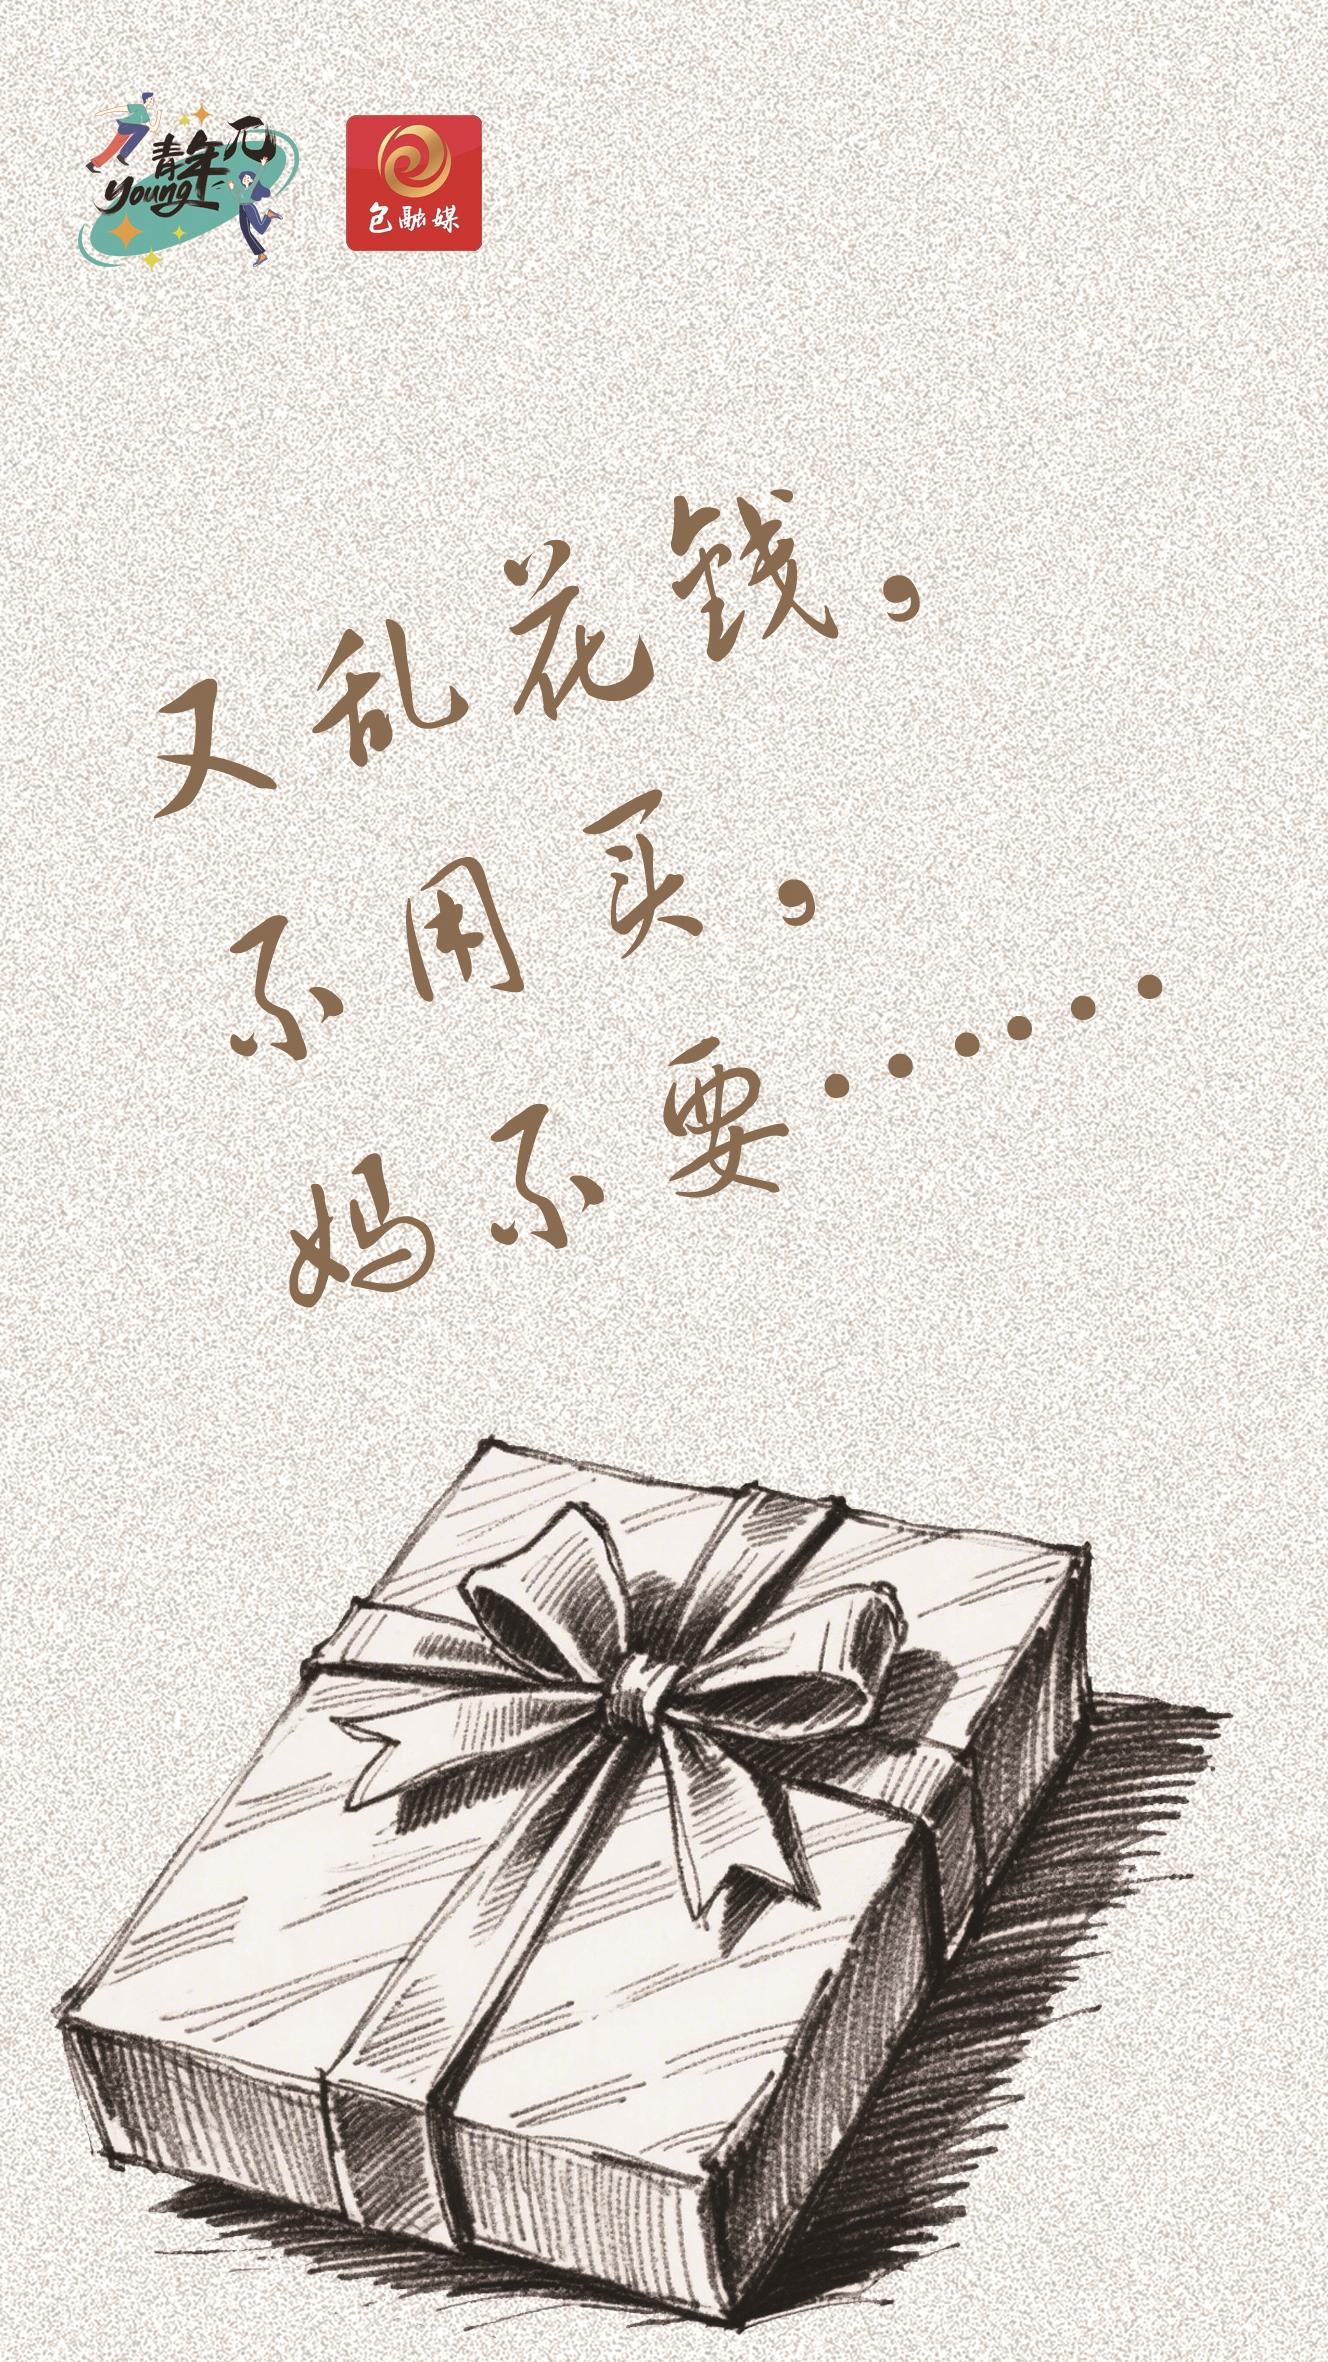 青年
young
包融媒
又乱花钱，
不用买，
妈不要……